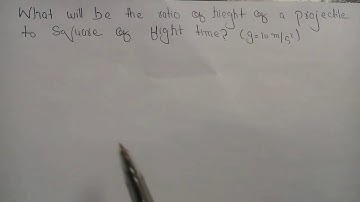 What will be the ratio of hieght of a projectile
to Square of flight time? (g=10 m/s²)